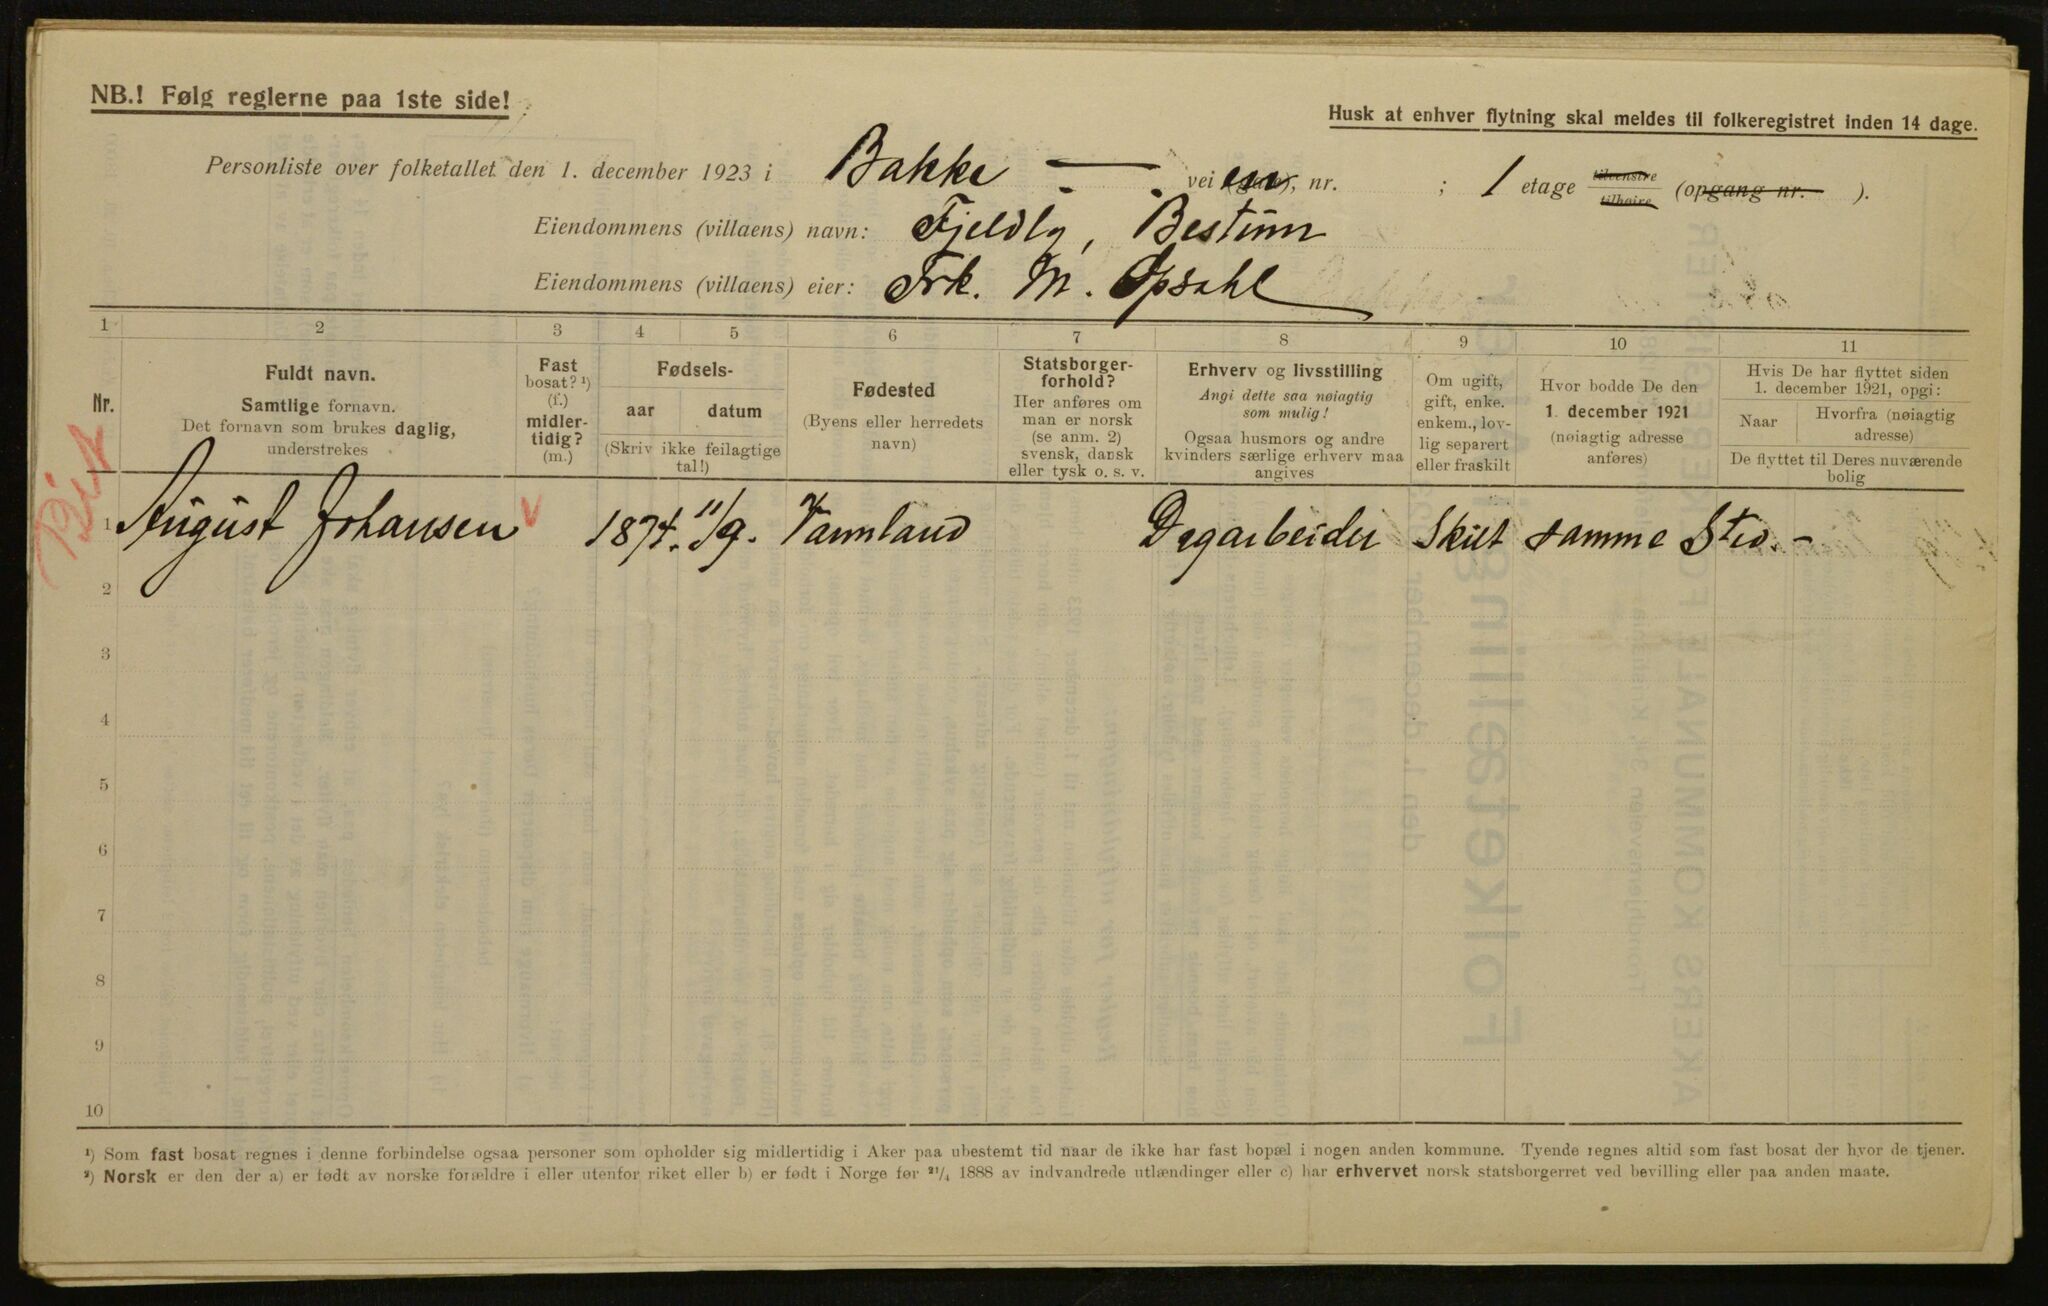 NB.! Følg reglerne paa 1ste side!
Husk at enhver flytning skal meldes til folkeregistret inden 14 dage.
Personliste over folketallet den 1. december 1923 i Bakke - vei en (gate), nr. ; 1 etage tilvenstre tilhøire (opgang nr. ).
Eiendommens (villaens) navn: Fjeldly, Bestum
Eiendommens (villaens) eier: Frk. M. Opsahl
1 2 3 4 5 6 7 8 9 10 11
Nr.
Fuldt navn.
Samtlige fornavn.
Det fornavn som brukes daglig,
understrekes
Fast
bosat? ¹)
(f.)
midler-
tidig?
(m.)
Fødsels-
aar datum
(Skriv ikke feilagtige
tal!)
Fødested
(Byens eller herredets
navn)
Statsborger-
forhold?
Her anføres om
man er norsk
(se anm. 2)
svensk, dansk
eller tysk o. s. v.
Erhverv og livsstilling
Angi dette saa nøiagtig
som mulig!
Ogsaa husmors og andre
kvinders særlige erhverv maa
angives
Om ugift,
gift, enke.
enkem., lov-
lig separert
eller fraskilt
Hvor bodde De den
1. december 1921
(nøiagtig adresse
anføres)
Hvis De har flyttet siden
1. december 1921, opgi:
Naar Hvorfra (nøiagtig
adresse)
De flyttet til Deres nuværende
bolig
1 August Johansen v 1874. 11/9. Varmland Dagarbeider Skilt samme Sted. -
2
3
4
5
6
7
8
9
10
¹) Som fast bosat regnes i denne forbindelse ogsaa personer som opholder sig midlertidig i Aker paa ubestemt tid naar de ikke har fast bopæl i nogen anden kommune. Tyende regnes altid som fast bosat der hvor de tjener.
²) Norsk er den der a) er født av norske forældre i eller utenfor riket eller b) er født i Norge før ²¹/₄ 1888 av indvandrede utlændinger eller c) har erhvervet norsk statsborgerret ved bevilling eller paa anden maate.